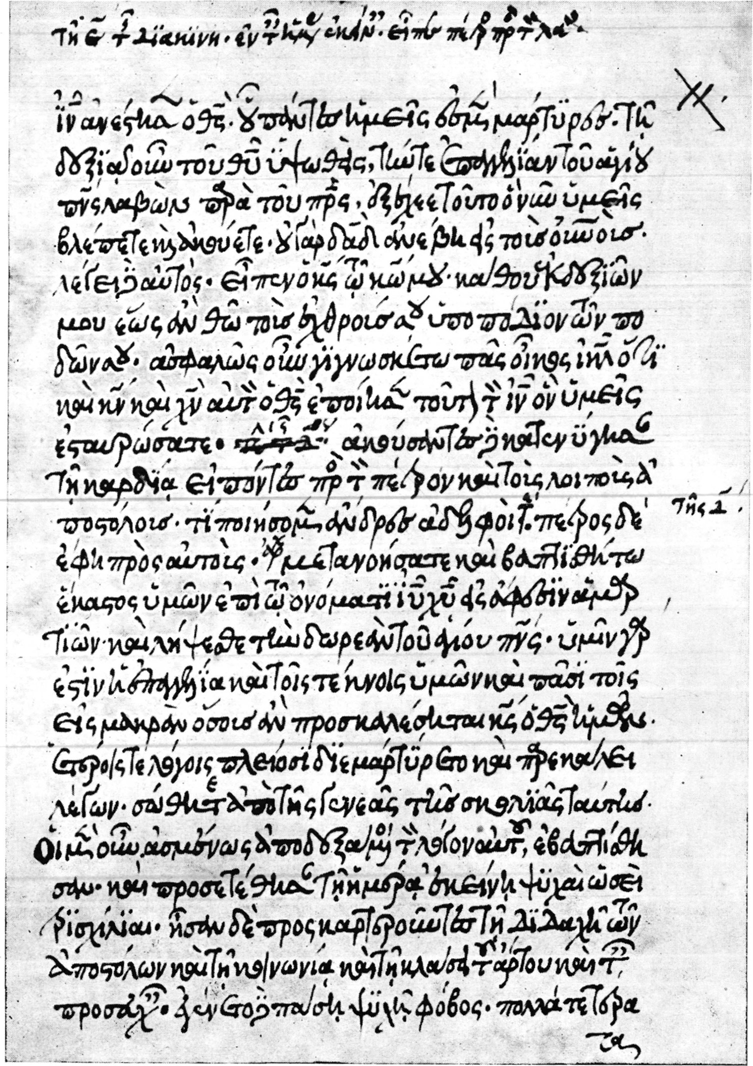 ιν̅ ἀνέστησεν ὁ θς̅. οὗ πάντες ἡμεῖς ἐσμεν μάρτυρες. τῇ
δεξιᾷ οὖν τοῦ θυ̅ ὑψωθεὶς, τήν τε ἐπαγγελίαν τοῦ ἁγίου
πνς̅ λαβὼν παρὰ τοῦ πρς̅, ἐξέχεε τοῦτο ὃ νῦν ὑμεῖς
βλέπετε καὶ ἀκούετε. οὐ γὰρ δαδ̅ ἀνέβη εἰς τοὺς οὐνους̅.
λέγει δὲ αὐτός. εἶπεν ὁ κς̅ τῷ κω̅ μου. κάθου ἐκ δεξιῶν
μου ἕως ἂν θῶ τοὺς ἐχθρούς σου ὑποπόδιον τῶν πο
δῶν σου. ἀσφαλῶς οὖν γιγνωσκέτω πᾶς οἶκος ιηλ̅ ὅτι
καὶ κν̅ καὶ χν̅ αὐτὸν ὁ θς̅ ἐποίησε τοῦτον τὸν ιν̅ ὃν ὑμεῖς
ἐσταυρώσατε. ἀκούσαντες δὲ κατενύγησαν
τῇ καρδίᾳ εἰπόντες πρὸς τὸν πέτρον καὶ τοὺς λοιποὺς ἀ
ποστόλους. τί ποιήσομεν ἄνδρες ἀδελφοί. πέτρος δὲ
ἔφη πρὸς αὐτούς. μετανοήσατε καὶ βαπτισθήτω
ἕκαστος ὑμῶν ἐπὶ τῷ ὀνόματι ιυ̅ χυ̅ εἰς ἄφεσιν ἁμαρ
τιῶν. καὶ λήψεσθε τὴν δωρεὰν τοῦ ἁγίου πνς̅. ὑμῖν γὰρ
ἐστιν ἡ ἐπαγγελία καὶ τοῖς τέκνοις ὑμῶν καὶ πᾶσι τοῖς
εἰς μακρὰν ὅσους ἂν προσκαλέσηται κς̅ ὁ θς̅ ἡμῶν.
ἑτέροις τε λόγοις πλείοσι διεμαρτύρετο καὶ παρεκάλει
λέγων. σώθητε ἀπὸ τῆς γενεᾶς τῆς σκολιᾶς ταύτης.
Οἱ μὲν οὖν ἀσμένως ἀποδεξάμενοι τὸν λόγον αὐτοῦ, ἐβαπτίσθη
σαν. καὶ προσετέθησαν τῇ ἡμέρᾳ ἐκείνῃ ψυχαὶ ὡσεὶ
τρισχίλιαι. ἦσαν δὲ προσκαρτεροῦντες τῇ διδαχῇ τῶν
ἀποστόλων καὶ τῇ κοινωνίᾳ καὶ τῇ κλάσει τοῦ ἄρτου καὶ ταῖς
προσευχαῖς. ἐγένετο δὲ πάσῃ ψυχῇ φόβος. πολλά τε τέρα
τα